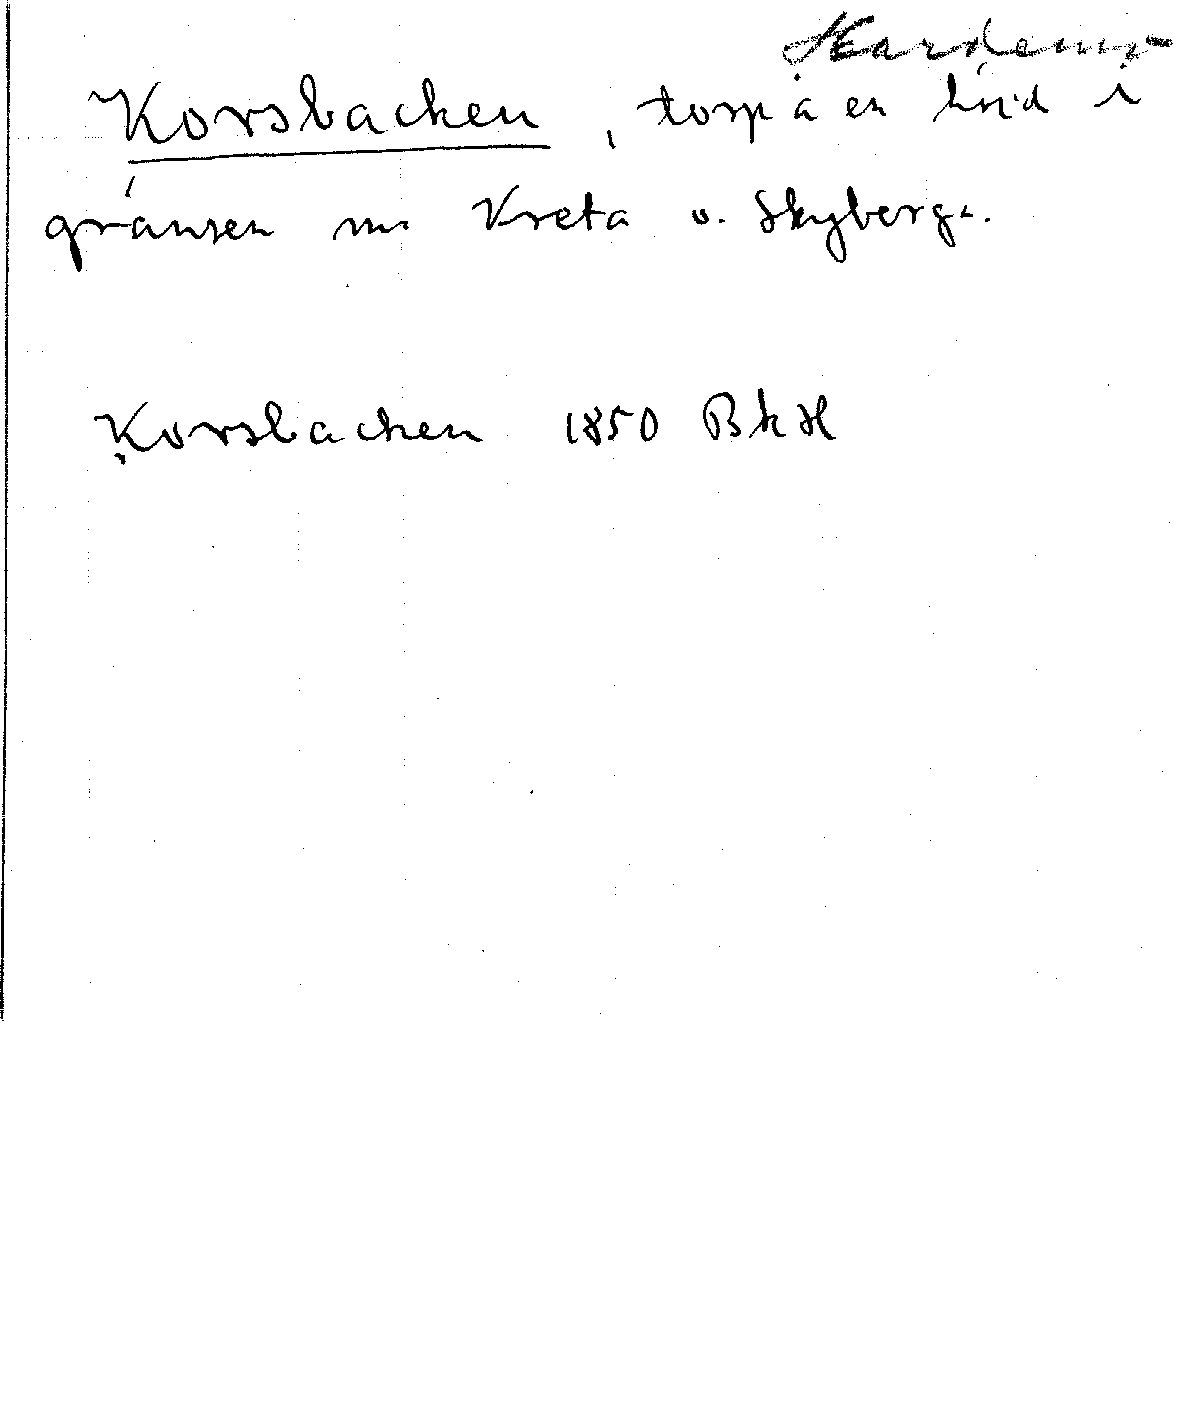 Hardemo
Korsbacken, torp å en höjd i
gränsen m. Kreta o. Skyberga.
Korsbacken 1850 BkH